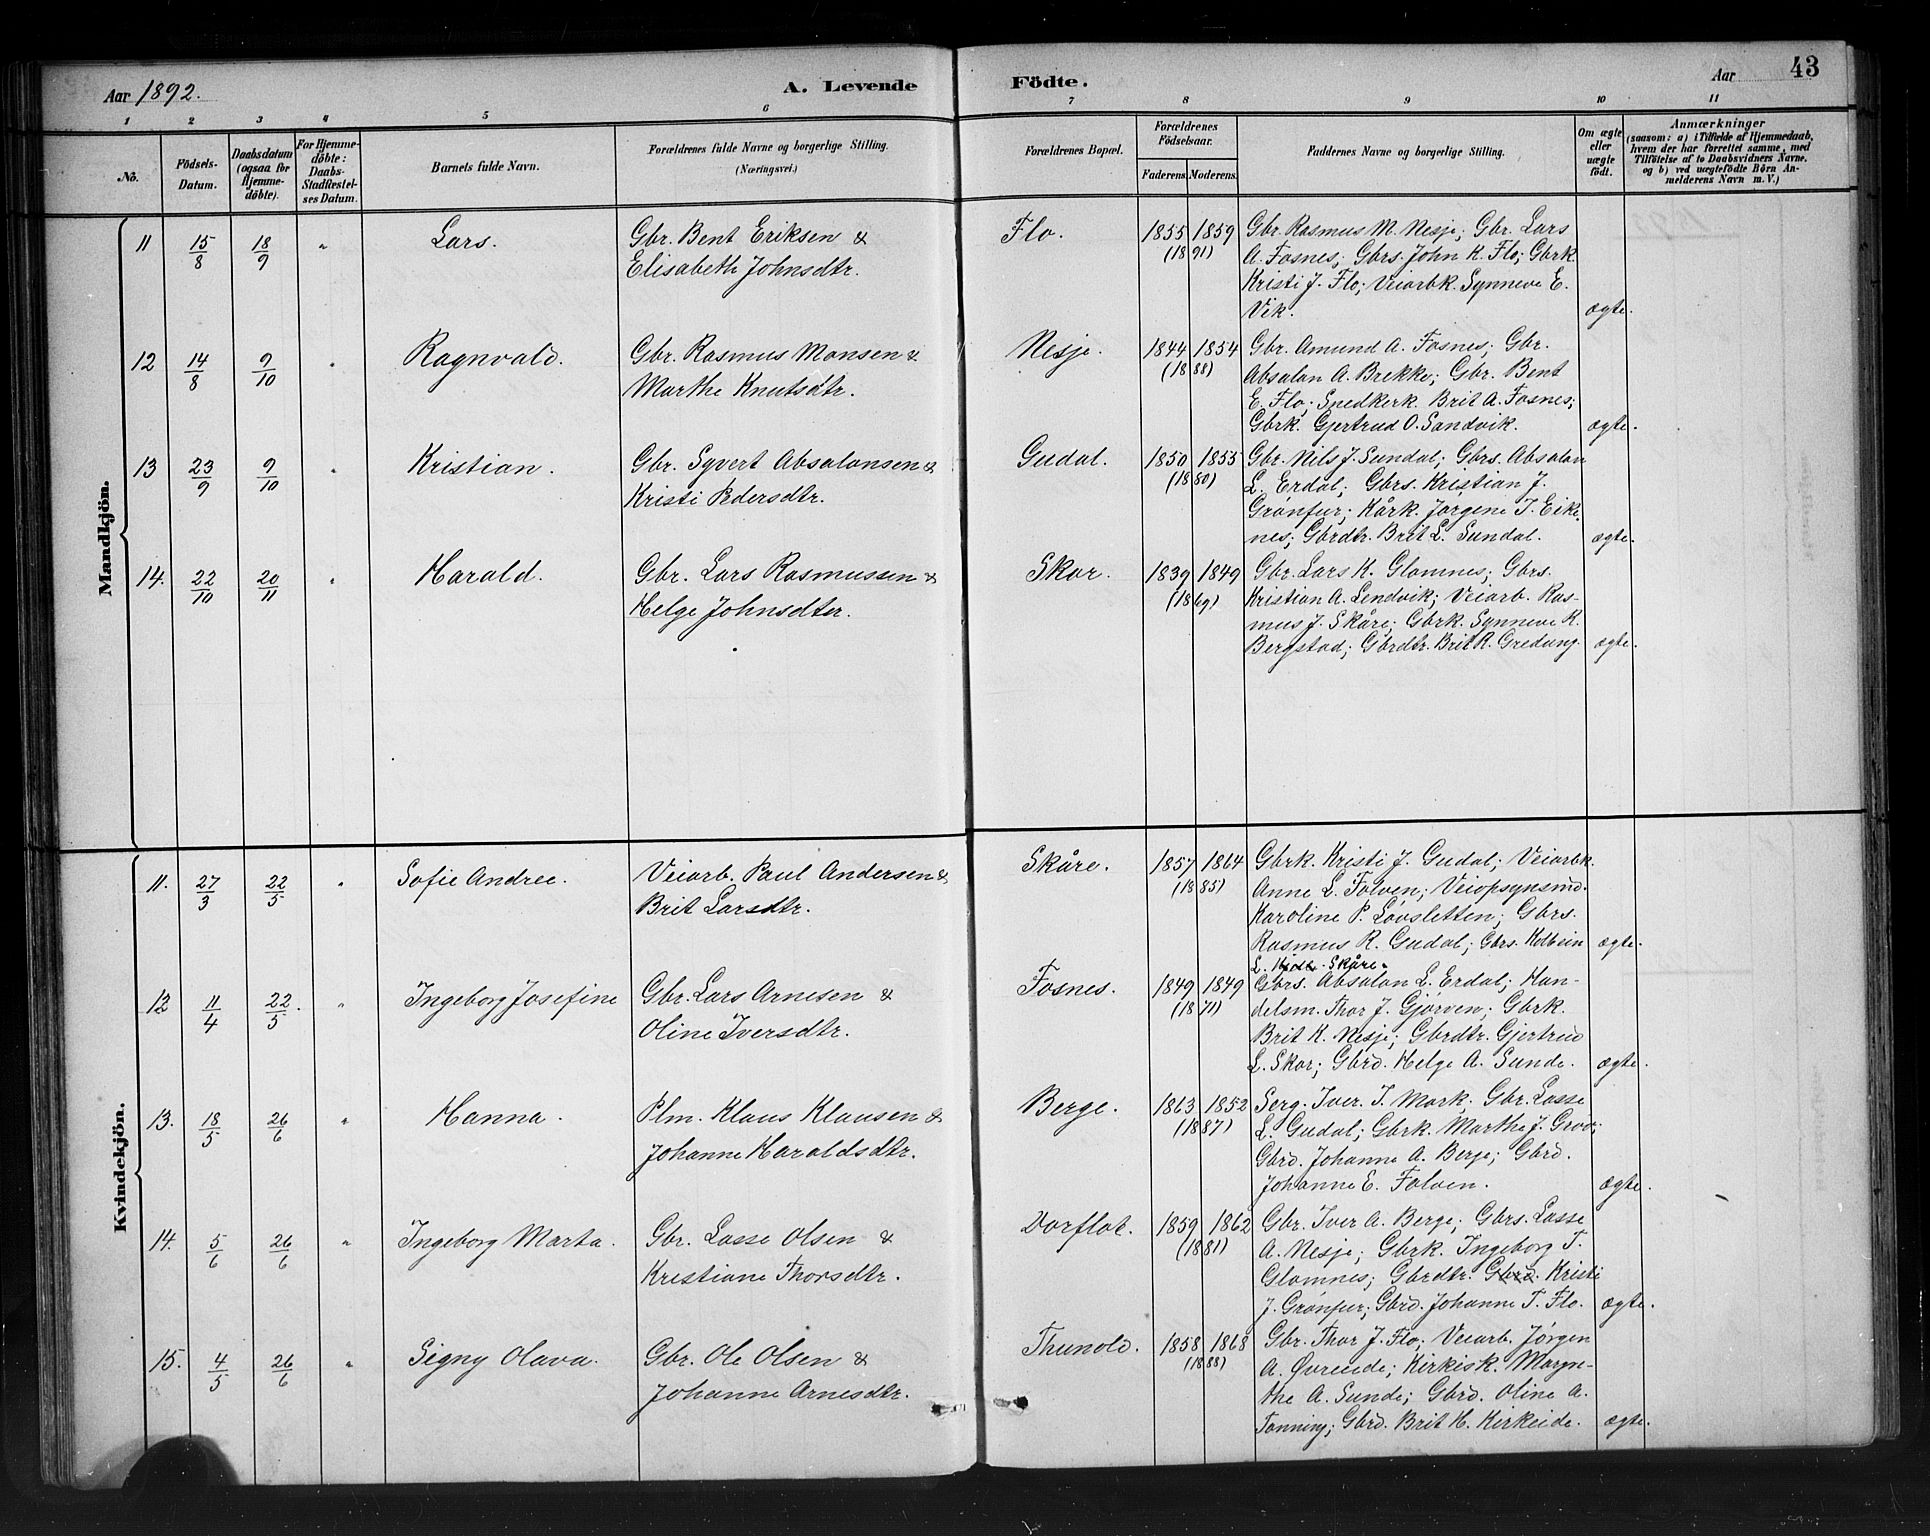 Aar 1892.
A. Levende
Födte.
Aar
43
1 2 3 4 5 6 7 8 9 10 11
No.
Födsels-Datum.
Daabsdatum (ogsaa for Hjemme-döbte).
For Hjemme-döbte: Daabs-Stadfæstelses Datum.
Barnets fulde Navn.
Forældrenes fulde Navne og borgerlige Stilling.
(Næringsvei.)
Forældrenes Bopæl.
Forældrenes Födselsaar.
Faderens. Moderens.
Faddernes Navne og borgerlige Stilling.
Om ægte eller uægte födt.
Anmærkninger
(saasom: a) i Tilfælde af Hjemmedaab,
hvem der har forrettet samme, med
Tilföielse af to Daabsvidners Navne,
og b) ved uægtefödte Börn An-
melderens Navn m. V.)
Mandkjön.
11 15/8 18/9 " Lars. Gbr. Bent Eriksen &
Elisabeth Johnsdtr.
Flo. 1855 1859 (1891)
Gbr. Rasmus M. Nesje; Gbr. Lars
A. Fosnes; Gbrs. John K. Flo; Gbrk.
Kristi J. Flo; Veiarbk. Synneve E.
Vik. ægte.
12 14/8 9/10 " Ragnvald. Gbr. Rasmus Monsen &
Marthe Knutsdtr.
Nesje. 1844 1854 (1888)
Gbr. Amund A. Fosnes; Gbr.
Absalon A. Brekke; Gbr. Bent
E. Flo; Snedkerk. Brit A. Fosnes;
Gbrk. Gjertrud O. Sandvik. ægte.
13 23/9 9/10 " Kristian. Gbr. Syvert Absalonsen &
Kristi Pedersdtr.
Gudal. 1850 1855 (1880)
Gbr. Nils J. Sundal; Gbrs. Absalon
L. Erdal; Gbrs. Kristian J.
Grønfur; Kårk. Jørgene T. Eike-
nes; Gbrdtr. Brit L. Sundal. ægte.
14. 22/10 20/11 " Harald. Gbr. Lars Rasmussen &
Helge Johnsdter.
Skor. 1839 1849 (1869)
Gbr. Lars K. Glomnes; Gbrs.
Kristian A. Lendvik; Veiarb. Ras-
mus J. Skåre; Gbrk. Synneve R.
Bergstad; Gbrdtr. Brit R. Gredung. ægte.
Kvindekjön.
11. 27/3 22/5 " Sofie Andree. Veiarb. Paul Andersen &
Brit Larsdtr.
Skåre. 1857 1864 (1885)
Gbrk. Kristi J. Gudal; Veiarbk.
Anne L. Folven; Veiopsynsmd.
Karoline P. Løvsletten; Gbrs.
Rasmus R. Gudal; Gbrs. Kolbein
L. Skåre. ægte.
12 11/4 22/5. " Ingeborg Josefine Gbr. Lars Arnesen &
Oline Iversdtr.
Fosnes. 1849 1849 (1871)
Gbrs. Absalon L. Erdal; Han-
delsm. Thor J. Gjørven; Gbrk.
Brit K. Nesje; Gbrdtr. Gjertrud
L. Skor; Gbrd. Helge A. Sunde. ægte.
13. 18/5 26/6 " Hanna. Plm. Klaus Klausen &
Johanne Haraldsdtr.
Berge. 1863 1852 (1887)
Serg. Iver T. Mork; Gbr. Lasse
L. Gudal; Gbrk. Marthe J. Grov;
Gbrd. Johanne A. Berje; Gbrd.
Johanne E. Folven. ægte.
14. 5/6 26/6 " Ingeborg Marta. Gbr. Lasse Olsen &
Kristiane Thorsdtr.
Dorflot. 1859 1862 (1881)
Gbr. Iver A. Berge; Gbrs. Lasse
A. Nesje; Gbrk. Ingeborg T.
Glomnes; Gbrdtr. Gbrd. Kristi
J. Grønfur; Gbrd. Johanne T. Flo. ægte.
15. 4/5 26/6 " Signy Olava. Gbr. Ole Olsen &
Johanne Arnesdtr.
Thunold. 1858 1868 (1888)
Gbr. Thor J. Flo; Veiarb. Jørgen
A. Øvreeide; Kirkisk. Maryn-
the A. Sunde; Gbrd. Oline A.
Tonning; Gbrd. Brit H. Kirkeide. ægte.